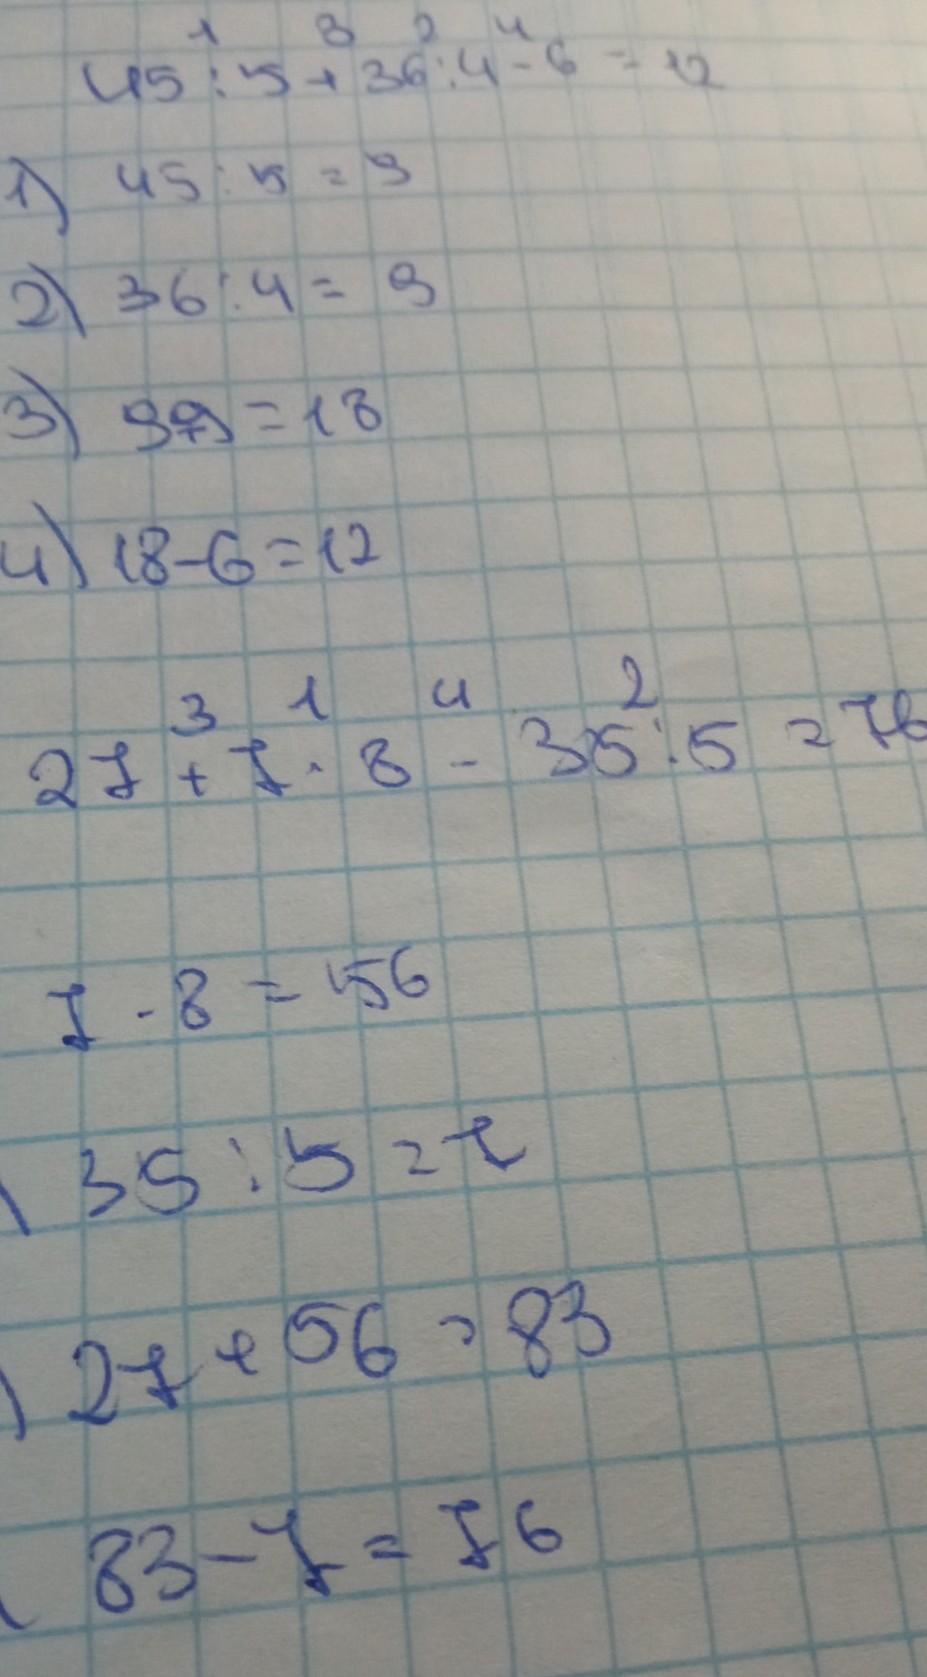 1 3 2 4
45 : 5 + 36 : 4 - 6 = 12
1) 45 : 5 = 9
2) 36 : 4 = 9
3) 9+9 = 18
4) 18-6 = 12
3 1 4 2
27 + 7 · 8 - 35 : 5 = 76
7 · 8 = 56
) 35 : 5 = 7
) 27 + 56 = 83
) 83 - 7 = 76